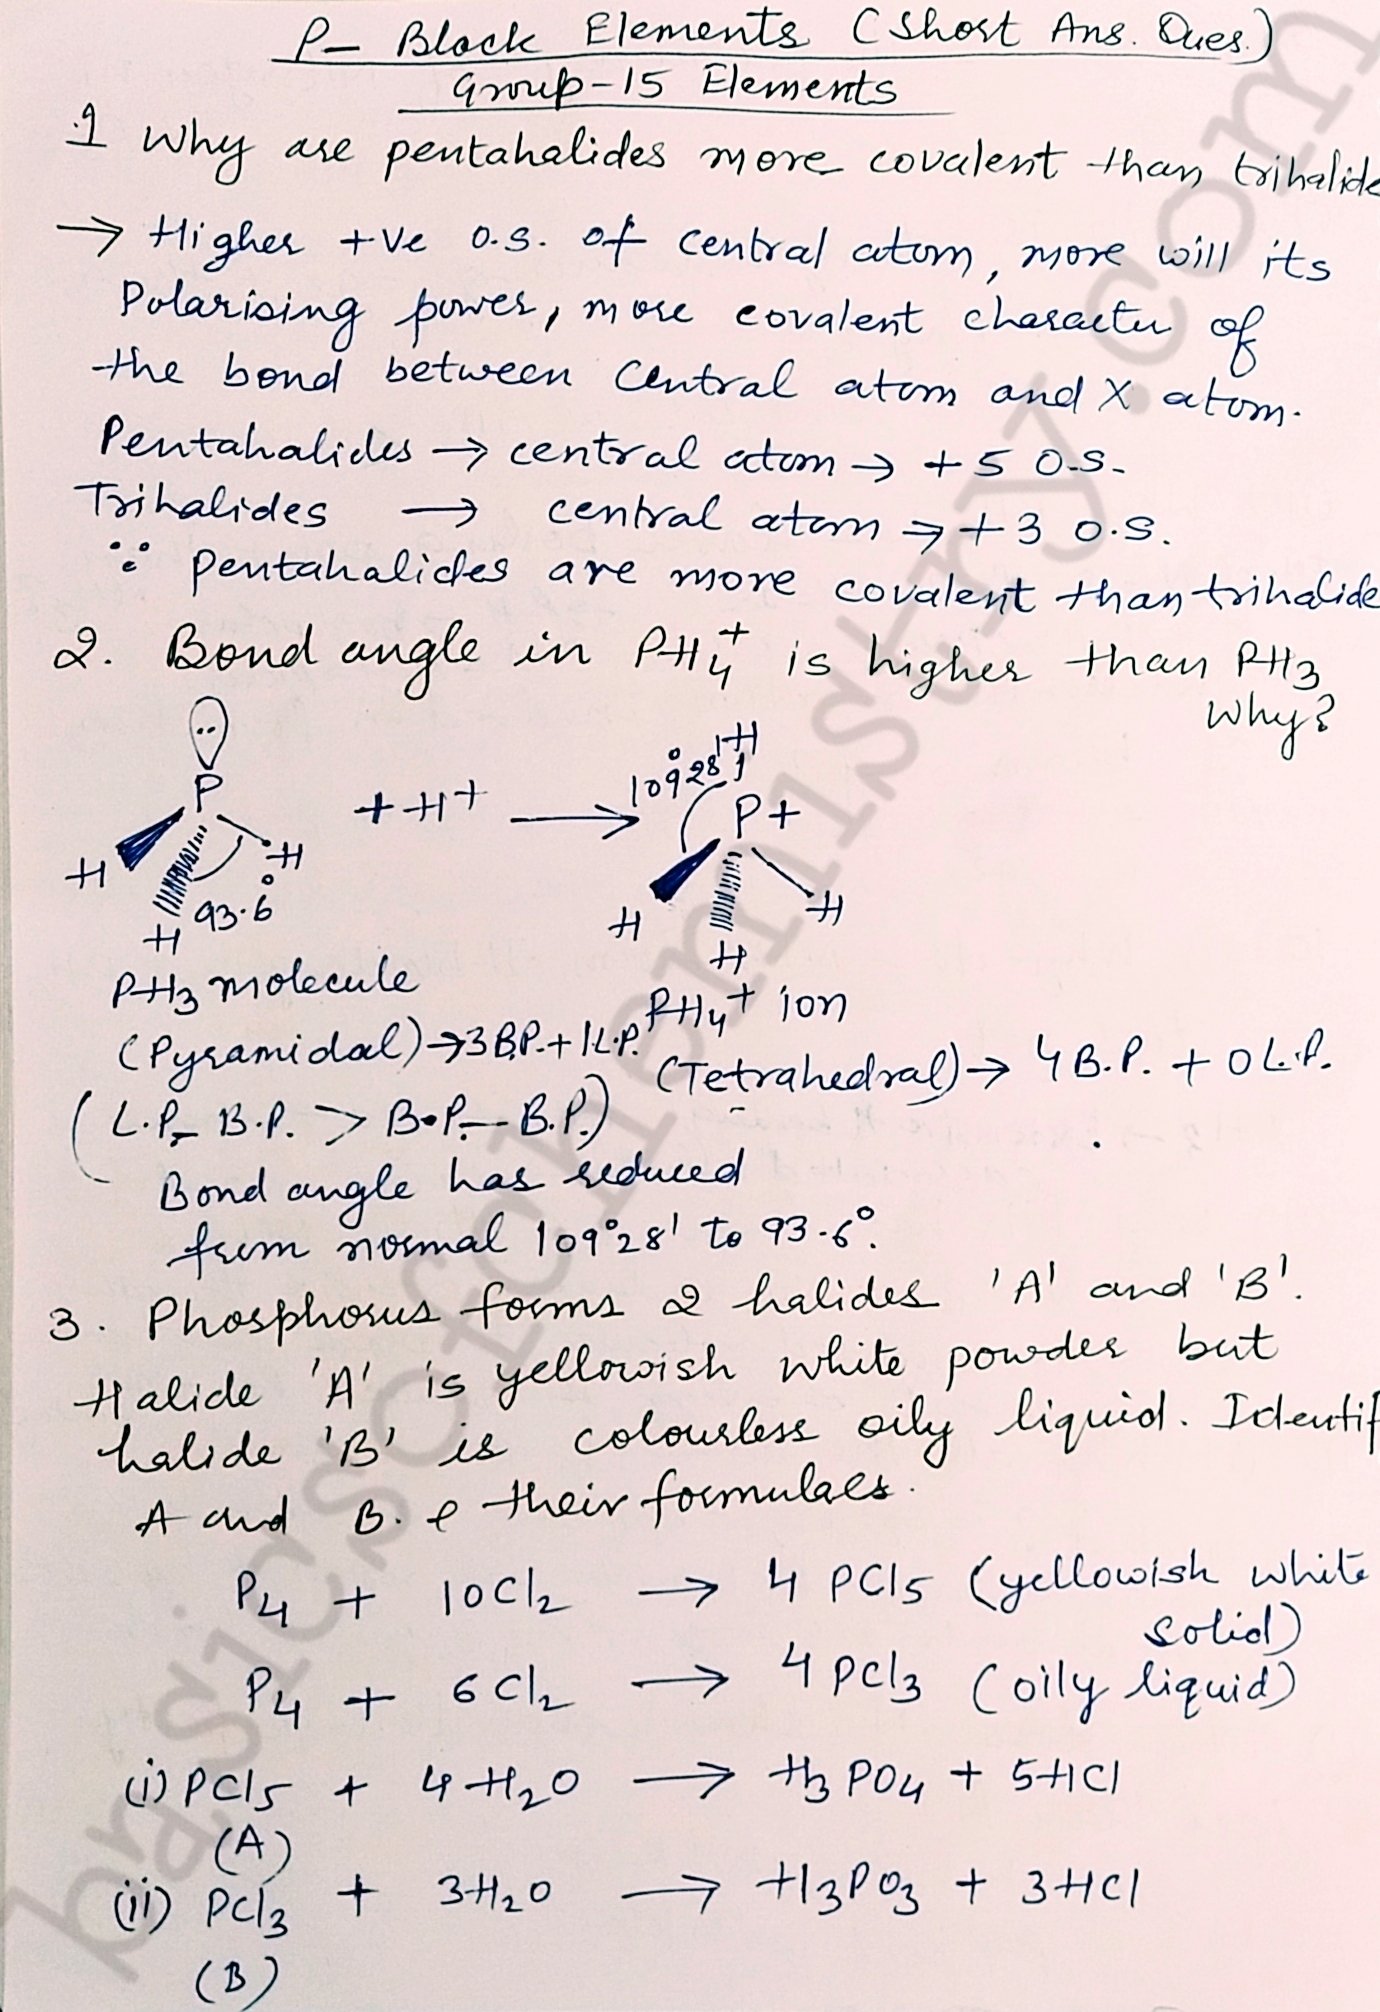 P- Block Elements (Short Ans. Ques.)
Group-15 Elements
1 Why are pentahalides more covalent than trihalide
→ Higher +ve o.s. of central atom, more will its
Polarising power, more covalent character of
the bond between Central atom and X atom.
Pentahalides → central atom → +5 O.S.
Trihalides → central atom → +3 O.S.
∵ Pentahalides are more covalent than trihalide
2. Bond angle in PH4+ is higher than PH3
Why?
P
H
H
H
93.6°
+ H+ →
109°28'
H
P+
H
H
H
PH3 molecule
(Pyramidal) → 3 B.P. + 1 L.P.
PH4+ ion
(Tetrahedral) → 4 B.P. + 0 L.P.
(L.P.- B.P. > B.P.- B.P.)
Bond angle has reduced
from normal 109°28' to 93.6°.
3. Phosphorus forms 2 halides 'A' and 'B'.
Halide 'A' is yellowish white powder but
halide 'B' is colourless oily liquid. Identif
A and B. & their formulaes.
P4 + 10Cl2 → 4 PCl5 (yellowish white
solid)
P4 + 6Cl2 → 4 PCl3 (oily liquid)
(i) PCl5 + 4H2O → H3PO4 + 5HCl
(A)
(ii) PCl3 + 3H2O → H3PO3 + 3HCl
(B)
basicsofchemistry.com